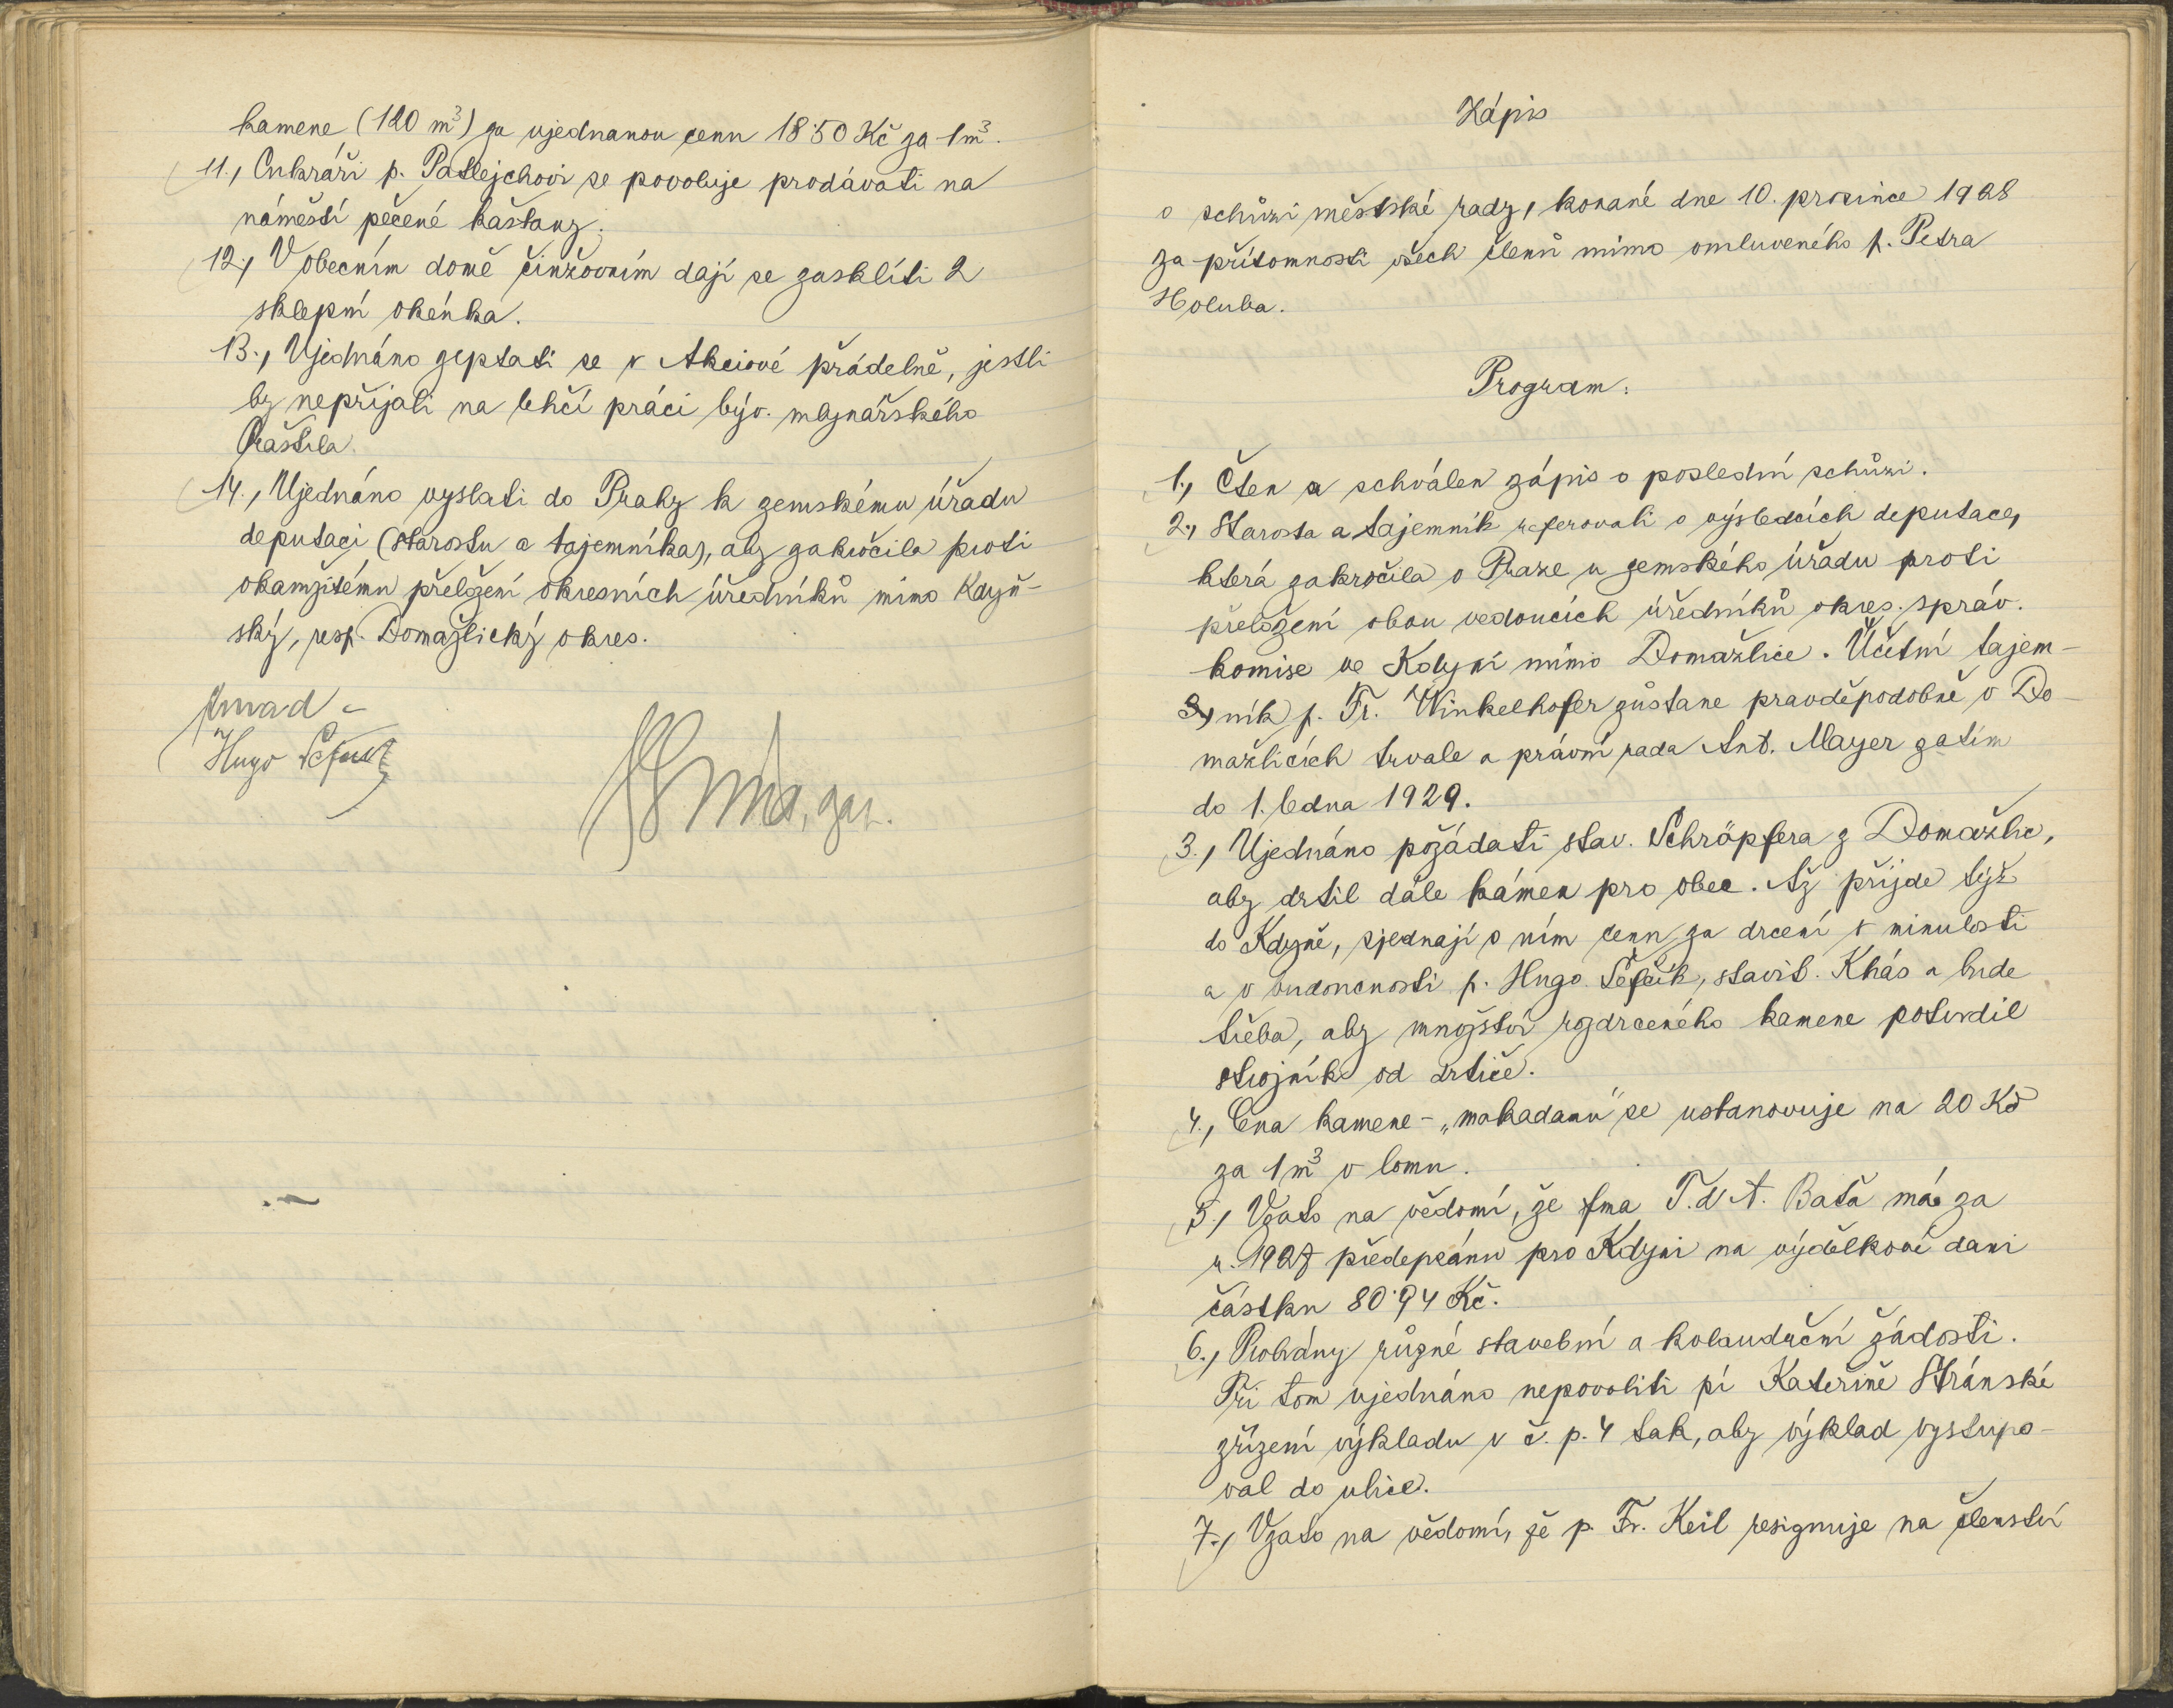 kamene (120 m³) za ujednanou cenu 18·50 Kč za 1 m³.
11., Cukráři p. Patlejchovi se povoluje prodávati na
náměstí pečené kaštany.
12., V obecním domě činžovním dají se zasklíti 2
sklepní okénka.
13., Ujednáno zeptati se v Akciové přádelně, jestli
by nepřijali na lehčí práci býv. mlynářského
Praštila.
14., Ujednáno vyslati do Prahy k zemskému úřadu
deputaci (starostu a tajemníka), aby zakročila proti
okamžitému přeložení okresních úředníků mimo Kdyň-
ský, resp. Domažlický okres.
Hugo Šefčík
Zápis
o schůzi městské rady, konané dne 10. prosince 1928
za přítomnosti všech členů mimo omluveného p. Petra
Holuba.
Program:
1., Čten a schválen zápis o poslední schůzi.
2., Starosta a tajemník referovali o výsledcích deputace,
která zakročila v Praze u zemského úřadu proti
přeložení obou vedoucích úředníků okres. správ.
komise ve Kdyni mimo Domažlice. Účetní tajem-
ník p. Fr. Winkelhofer zůstane pravděpodobně v Do-
mažlicích trvale a právní rada Ant. Mayer zatím
do 1. ledna 1929.
3., Ujednáno požádati stav. Schröpfera z Domažlic,
aby drtil dále kámen pro obec. Až přijde týž
do Kdyně, sjednají s ním cenu za drcení v minulosti
a v budoucnosti p. Hugo Šefčík, stavit. Khás a bude
třeba, aby množství rozdrceného kamene potvrdil
strojník od drtiče.
4., Cena kamene - „makadamu" se ustanovuje na 20 Kč
za 1 m³ v lomu.
5., Vzato na vědomí, že fma T. & A. Baťa má za
r. 1927 předepsánu pro Kdyni na výdělkové dani
částku 80·94 Kč.
6., Probrány různé stavební a kolaudační žádosti.
Při tom ujednáno nepovoliti pí Kateřině Stránské
zřízení výkladu v č. p. 4 tak, aby výklad vystupo-
val do ulice.
7., Vzato na vědomí, že p. Fr. Keil resignuje na členství